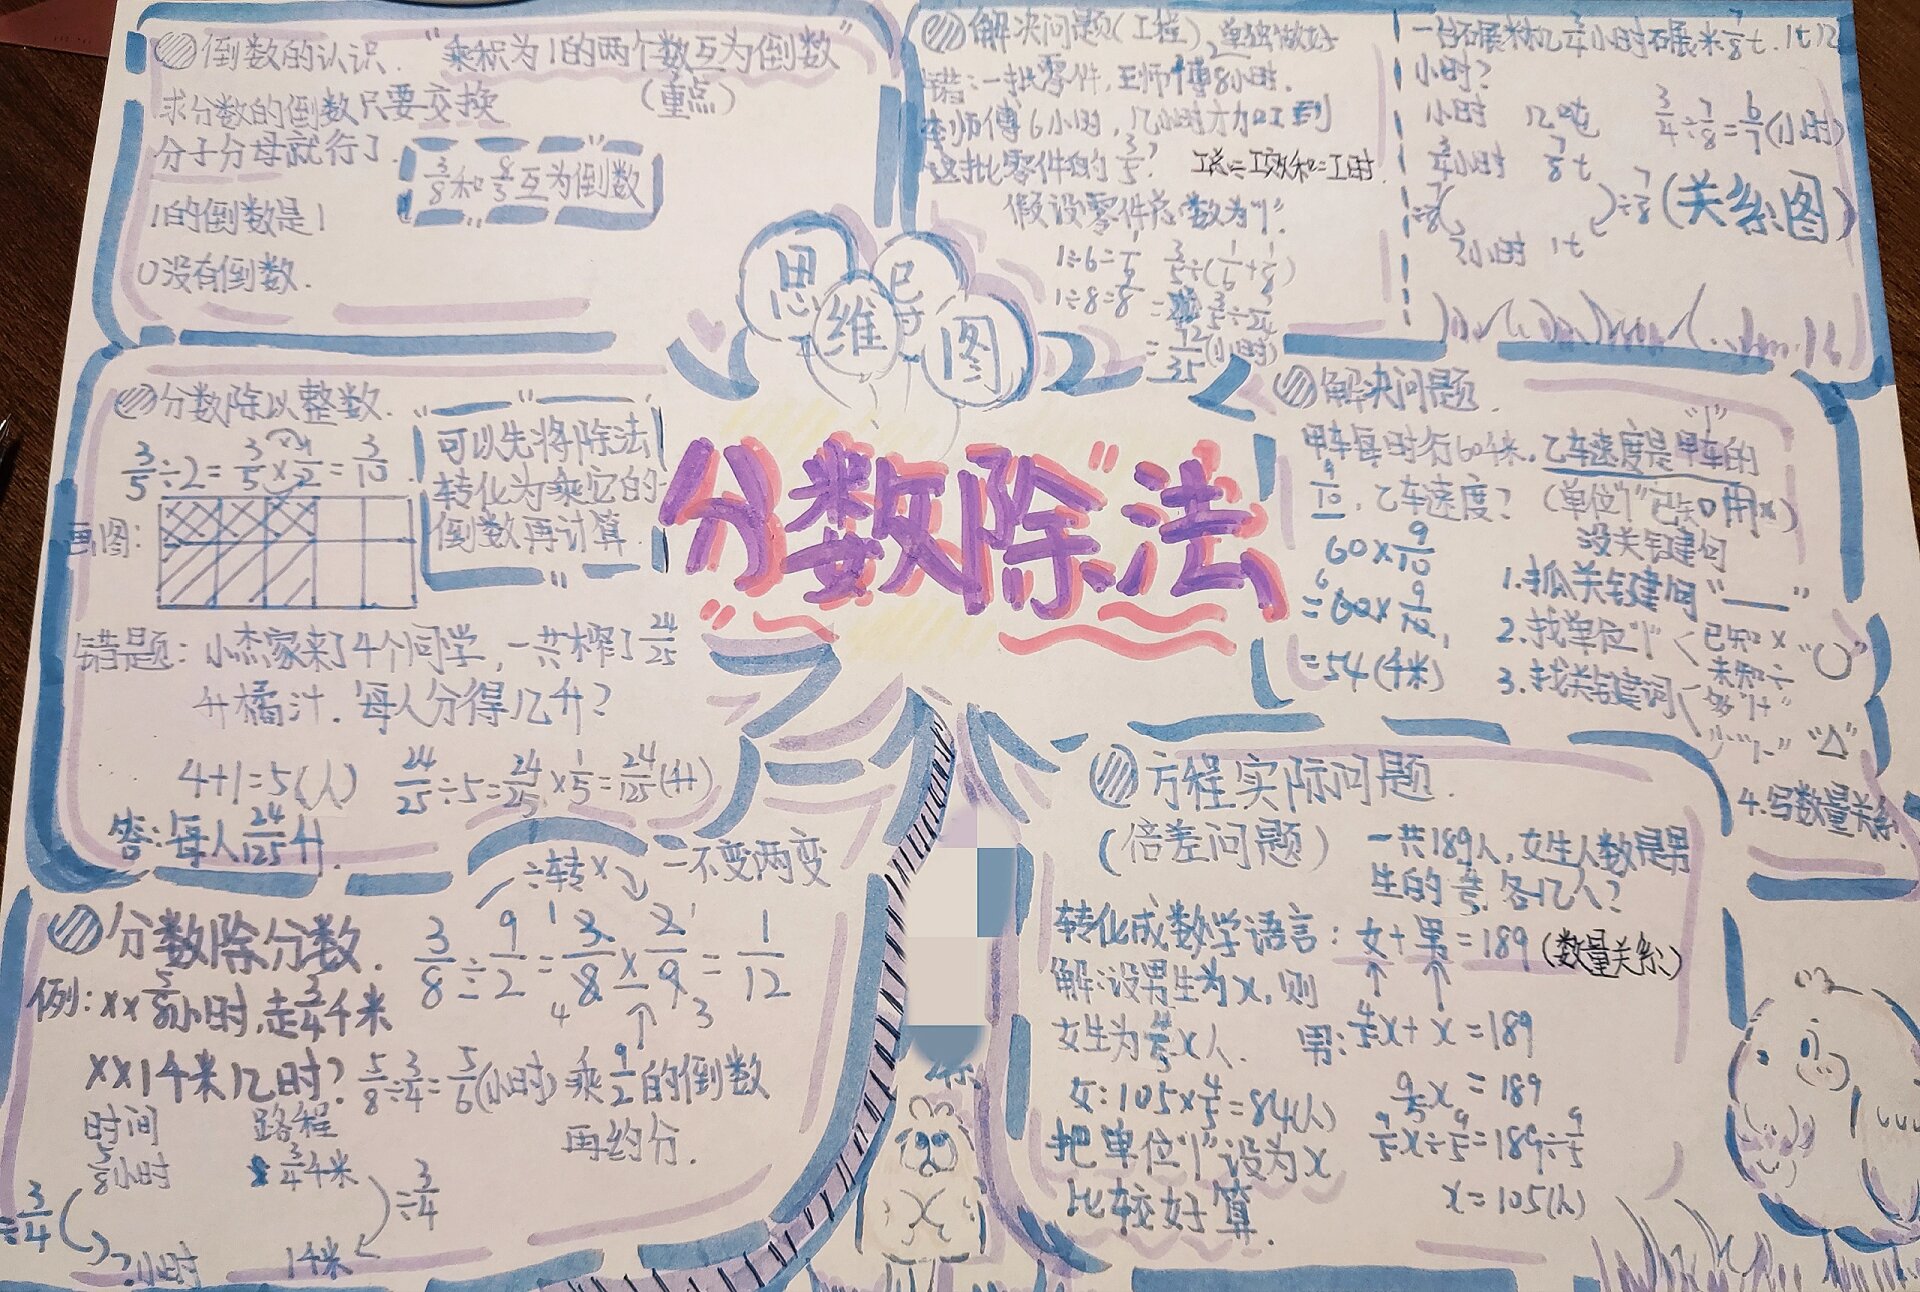 倒数的认识.
"乘积为1的两个数互为倒数"
(重点)
求分数的倒数只要交换
分子分母就行了.
3/8和8/3互为倒数
1的倒数是1
0没有倒数.
解决问题(工程)
单独做好
错:一批零件,王师傅8小时.
李师傅6小时,几小时才加工到
这批零件的3/5?
假设零件总数为"1".
1÷6=1/6
1÷8=1/8
3/5÷(1/6+1/8)
=3/5÷7/24
=72/35(小时)
小时?
小时
几吨
3/4÷7/8=6/7(小时)
3/4小时
7/8t
÷7/8(
)÷7/8(关系图)
?小时 1t
思维导图
分数除法
分数除以整数.
3/5÷2=3/5×1/2=3/10
可以先将除法
转化为乘它的
倒数再计算
画图:
错题:小杰家来了4个同学,一共榨了24/25
升橘汁.每人分得几升?
4+1=5(人)
24/25÷5=24/25×1/5=24/125(升)
答:每人24/125升.
解决问题.
"1"
甲车每时行60千米.乙车速度是甲车的
9/10,乙车速度?
(单位"1"已知用×)
没关键句
60×9/10
=60×9/10
=54(千米)
1.抓关键句"——"
2.找单位"1"<已知×
未知÷
"○"
3.找关键词<多"1+"
少"1-"
"△"
4.写数量关系.
分数除分数.
÷转×
一不变两变
3/8÷9/2=3/8×2/9=1/12
例:××5/8小时,走3/4千米
××1千米几时?5/8÷3/4=5/6(小时)
乘9/2的倒数
再约分.
时间
路程
5/8小时
3/4千米
÷3/4(
)÷3/4
?小时
1千米
方程实际问题.
(倍差问题)
一共189人,女生人数是男
生的4/5.各几人?
转化成数学语言:女+男=189(数量关系)
解:设男生为x,则
女生为4/5x人.
男:4/5x+x=189
9/5x=189
女:105×4/5=84(人)
9/5x÷9/5=189÷9/5
把单位"1"设为x
x=105(人)
比较好算.